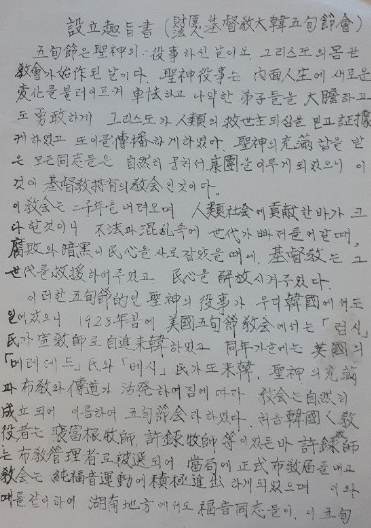 設立趣旨書 (基督敎大韓五旬節會)
五旬節은 聖神의 役事하신 날이오 그리스도의 몸된
敎會가 始作된 날이다. 聖神役事는 內面人生에 새로운
變化를 불러이르게 하고 나약한 弟子들을 大膽하고
도 勇敢하게 그리스도가 人類의 救世主되심을 믿고 証據
케 하였고 또 이를 傳播하게 하였다. 聖神의 充滿함을 받
은 모든 同志들은 自然히 뭉쳐서 集團을 이루게 되였으니 이
것이 基督敎 敎会인 것이다.
이 敎会는 二千年을 내려오며 人類社会에 貢献한 바가 크
다 할 것이니 不法과 混乱 속에 世代가 빠져들어갈 때,
腐敗와 暗黑이 民心을 사로잡았을 때에, 基督敎는 그
世代를 救援하여 주었고 民心을 解放시켜 주었다.
이러한 五旬節的인 聖神의 役事가 우리 韓國에서도
있었으니 1928年 봄에 美國五旬節敎会에서는 「럼시」
民가 宣敎師로 自進來韓하였고 同年 가을에는 英國의
「메레데드」民와 「베시」民가 또 來韓, 聖神의 充滿
과 布敎와 傳道가 活発하여짐에 따라 敎会는 自然히
成立되여 이름하여 五旬節会라 하였다. 처음 韓國人 敎
役者는 裵富根牧師 許銶牧師 等이였든바 許銶牧師
는 布敎管理者로 被選되여 當局에 正式 布敎届를 내고
敎会는 純福音運動에 積極 進出하게 되였으며 이와
때를 같이하여 湖南地方에서도 福音同志들이, 이 五旬